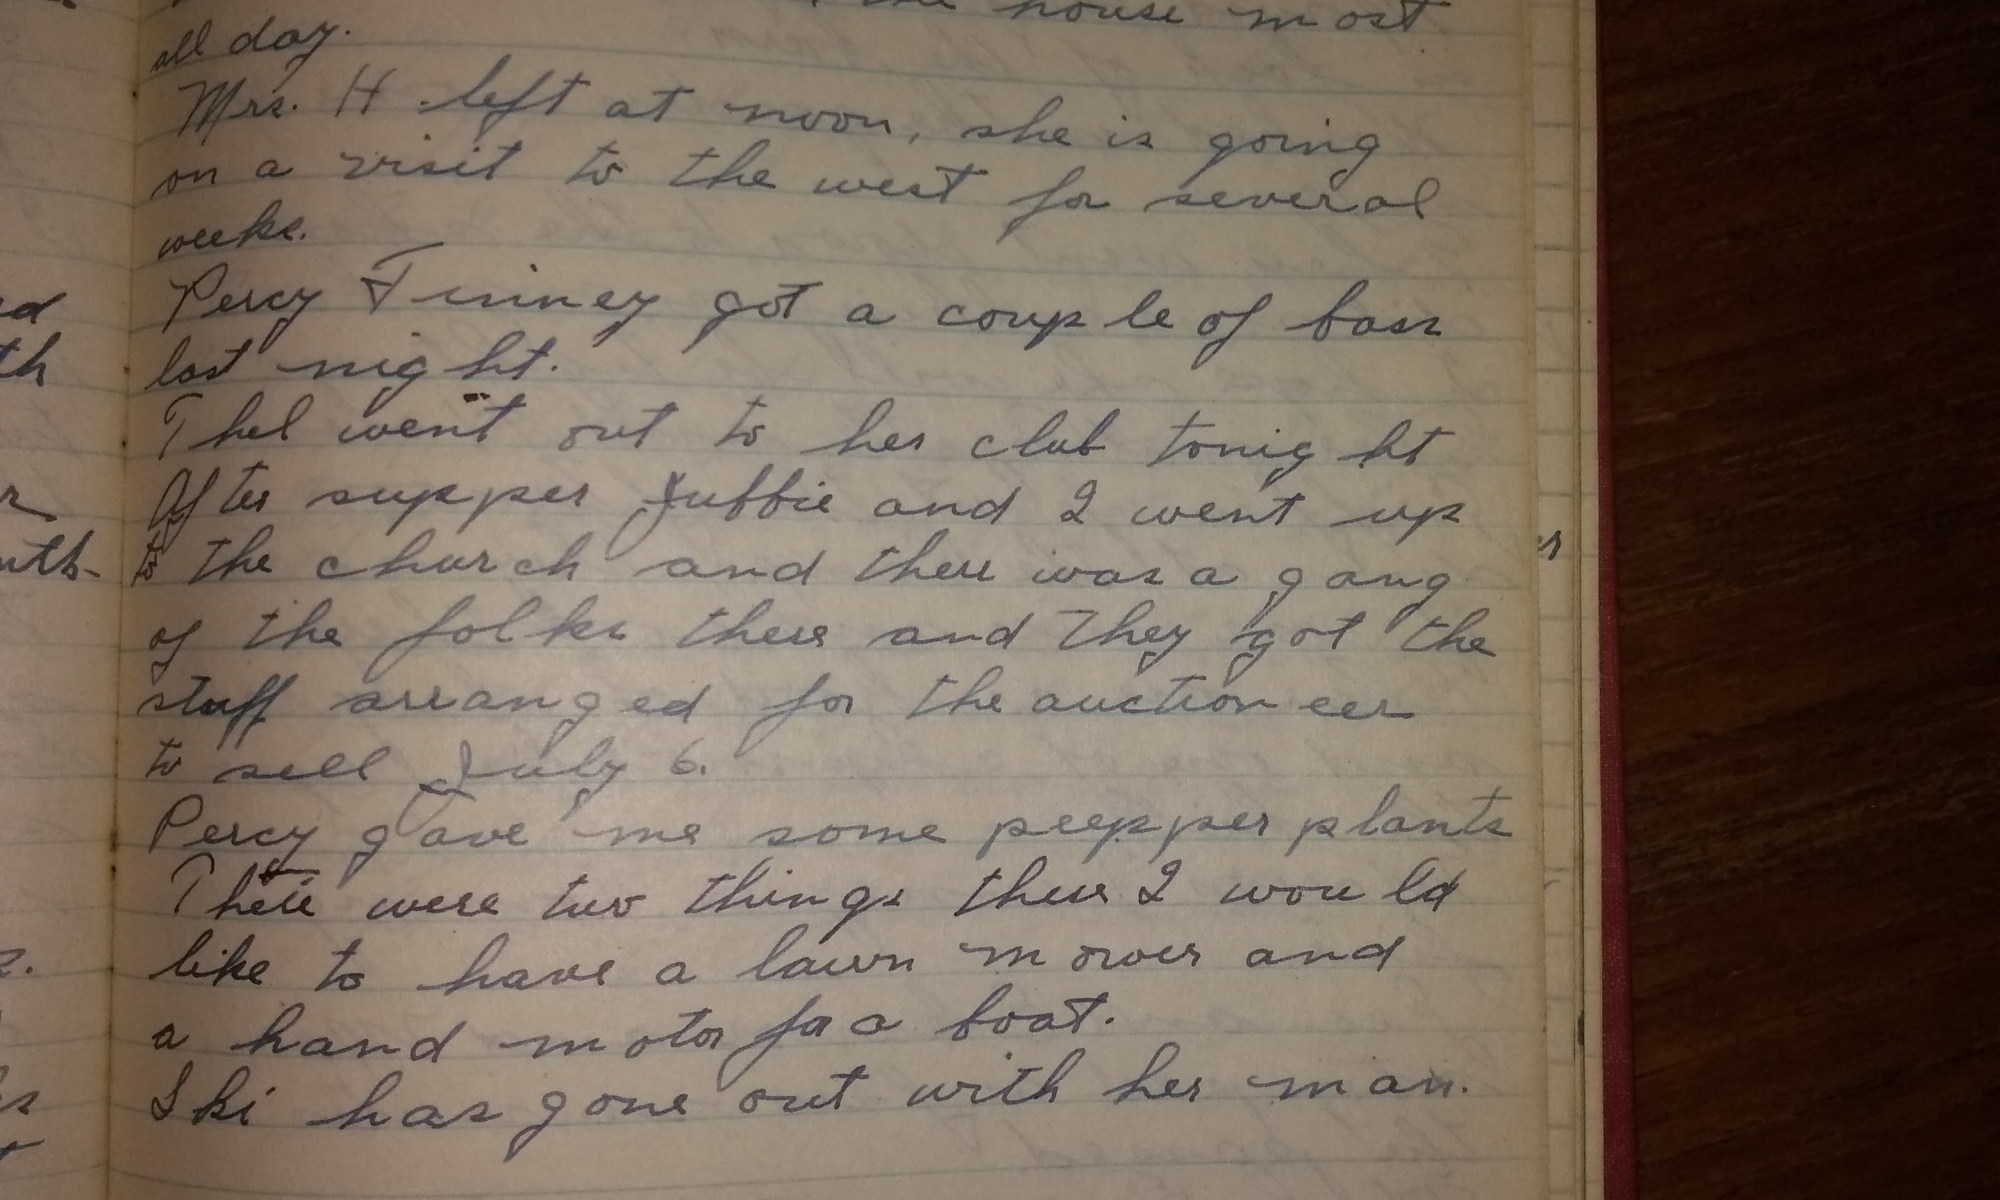 the house most
all day.
Mrs. H left at noon, she is going
on a visit to the west for several
weeks.
Percy Finney got a couple of bass
last night.
Thel went out to her club tonight
After supper Juffie and I went up
to the church and there was a gang
of the folks there and they got the
stuff arranged for the auctioneer
to sell July 6.
Percy gave me some peepper plants
There were two things there I would
like to have a lawn mower and
a hand motor for a boat.
Ski has gone out with her man.